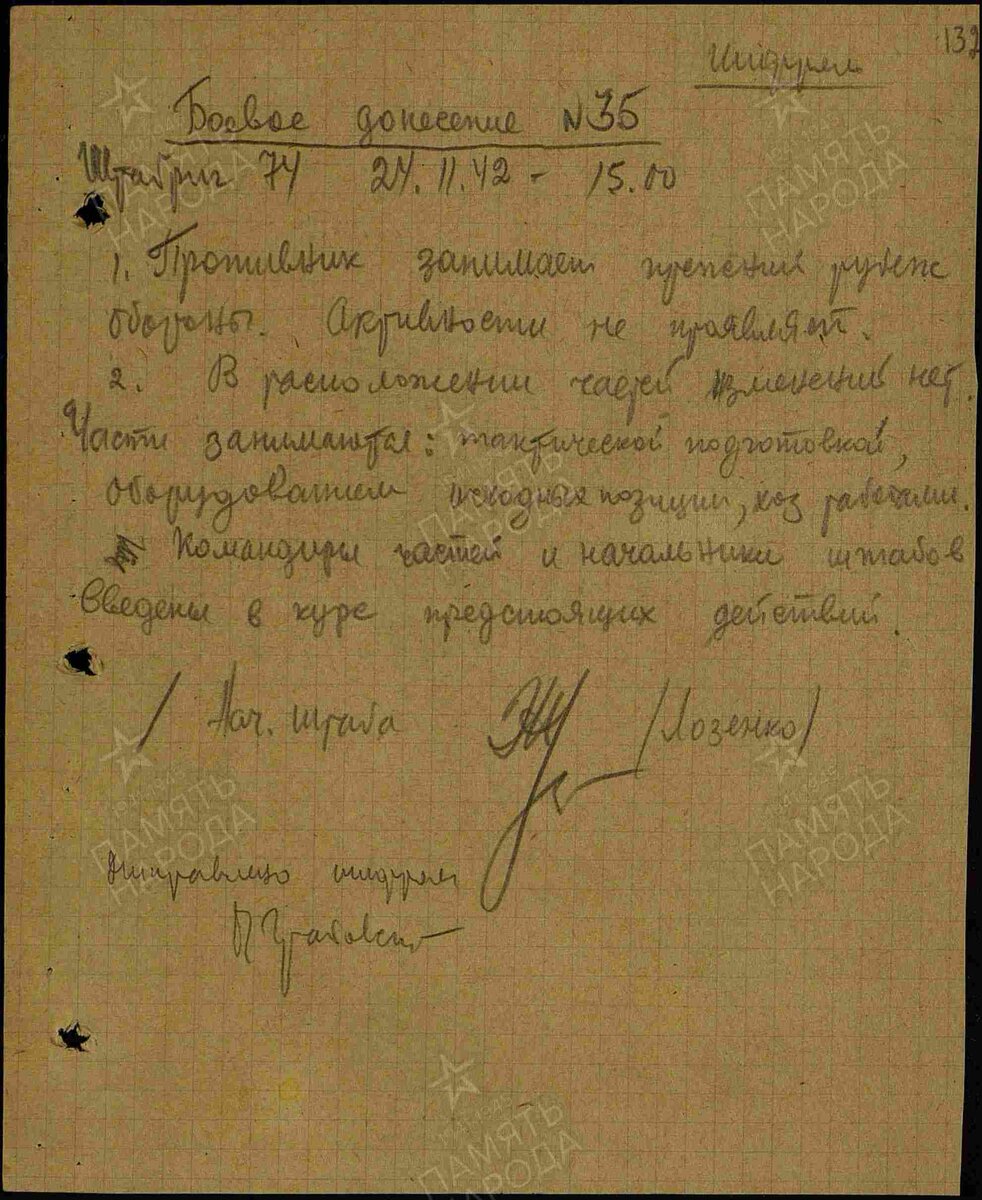 132
Шифром
Боевое донесение №35
Штабриг 74 24.11.42 - 15.00
1. Противник занимает прежний рубеж
обороны. Активности не проявляет.
2. В расположении частей изменений нет.
Части занимаются: тактической подготовкой,
оборудованием исходных позиций, хоз работами.
Командиры частей и начальники штабов
введены в курс предстоящих действий.
/ Нач. штаба /Лозенко/
Отправлено шифром